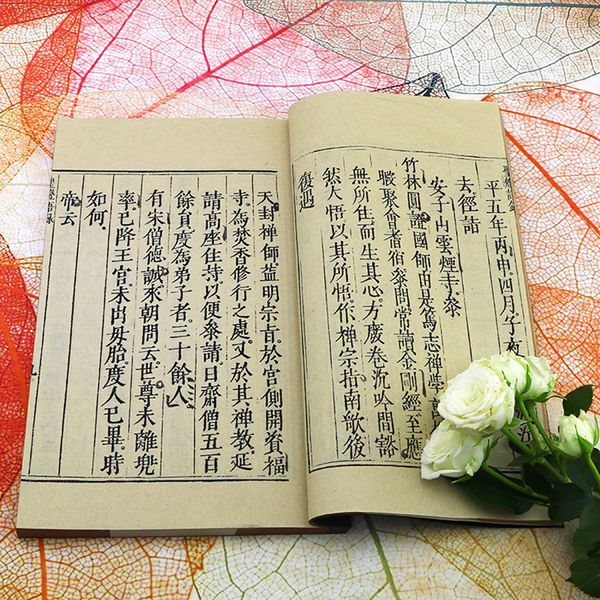 平五年丙申四月午夜
去徑詣
安子山雲煙寺參
竹林圓證國師由是篤志禪學
暇聚會耆宿參問常讀金剛經至應
無所住而生其心方廢卷沉吟間豁
然大悟以其所悟作禅宗指南歌後
復遇
天封禅師益明宗旨於宮側開資福
寺為焚香修行之處又於其禅教延
請高座住持以便參請日齋僧五百
餘員度為弟子者三十餘人
有宋僧德誠來朝問云世尊未離兜
率已降王宮未出母胎度人已畢時
如何
帝云